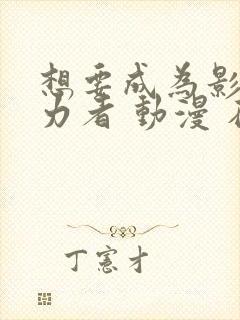 想要成為影
力者 動漫
丁憲才